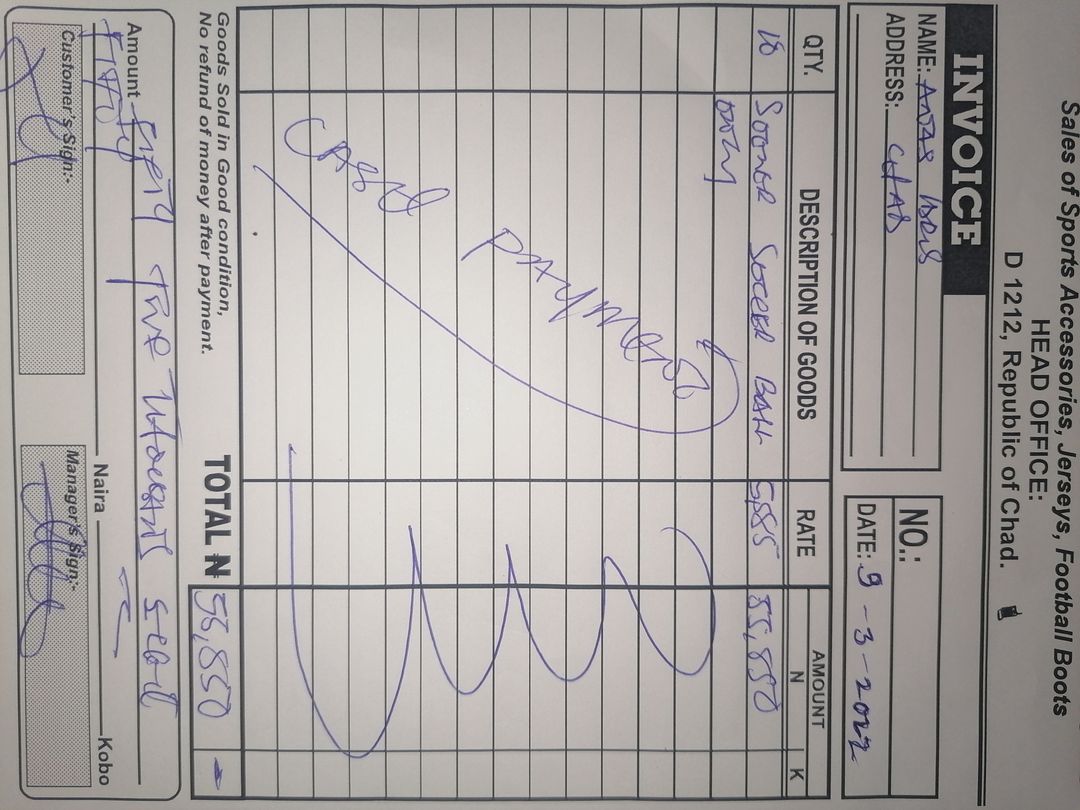 Sales of Sports Accessories, Jerseys, Football Boots
HEAD OFFICE:
D 1212, Republic of Chad.
INVOICE
NAME: Antar Idris
ADDRESS: CHAD
NO.:
DATE: 9-3-2022
QTY. DESCRIPTION OF GOODS RATE AMOUNT
N K
10 Sooner Soccer Ball 5,585 55,850
only
Cash Payment
Goods Sold in Good condition,
No refund of money after payment.
TOTAL N 55,850 -
Amount Fifty Five Thousand
Fifty
Naira Kobo
Customer's Sign:-
Manager's Sign:-